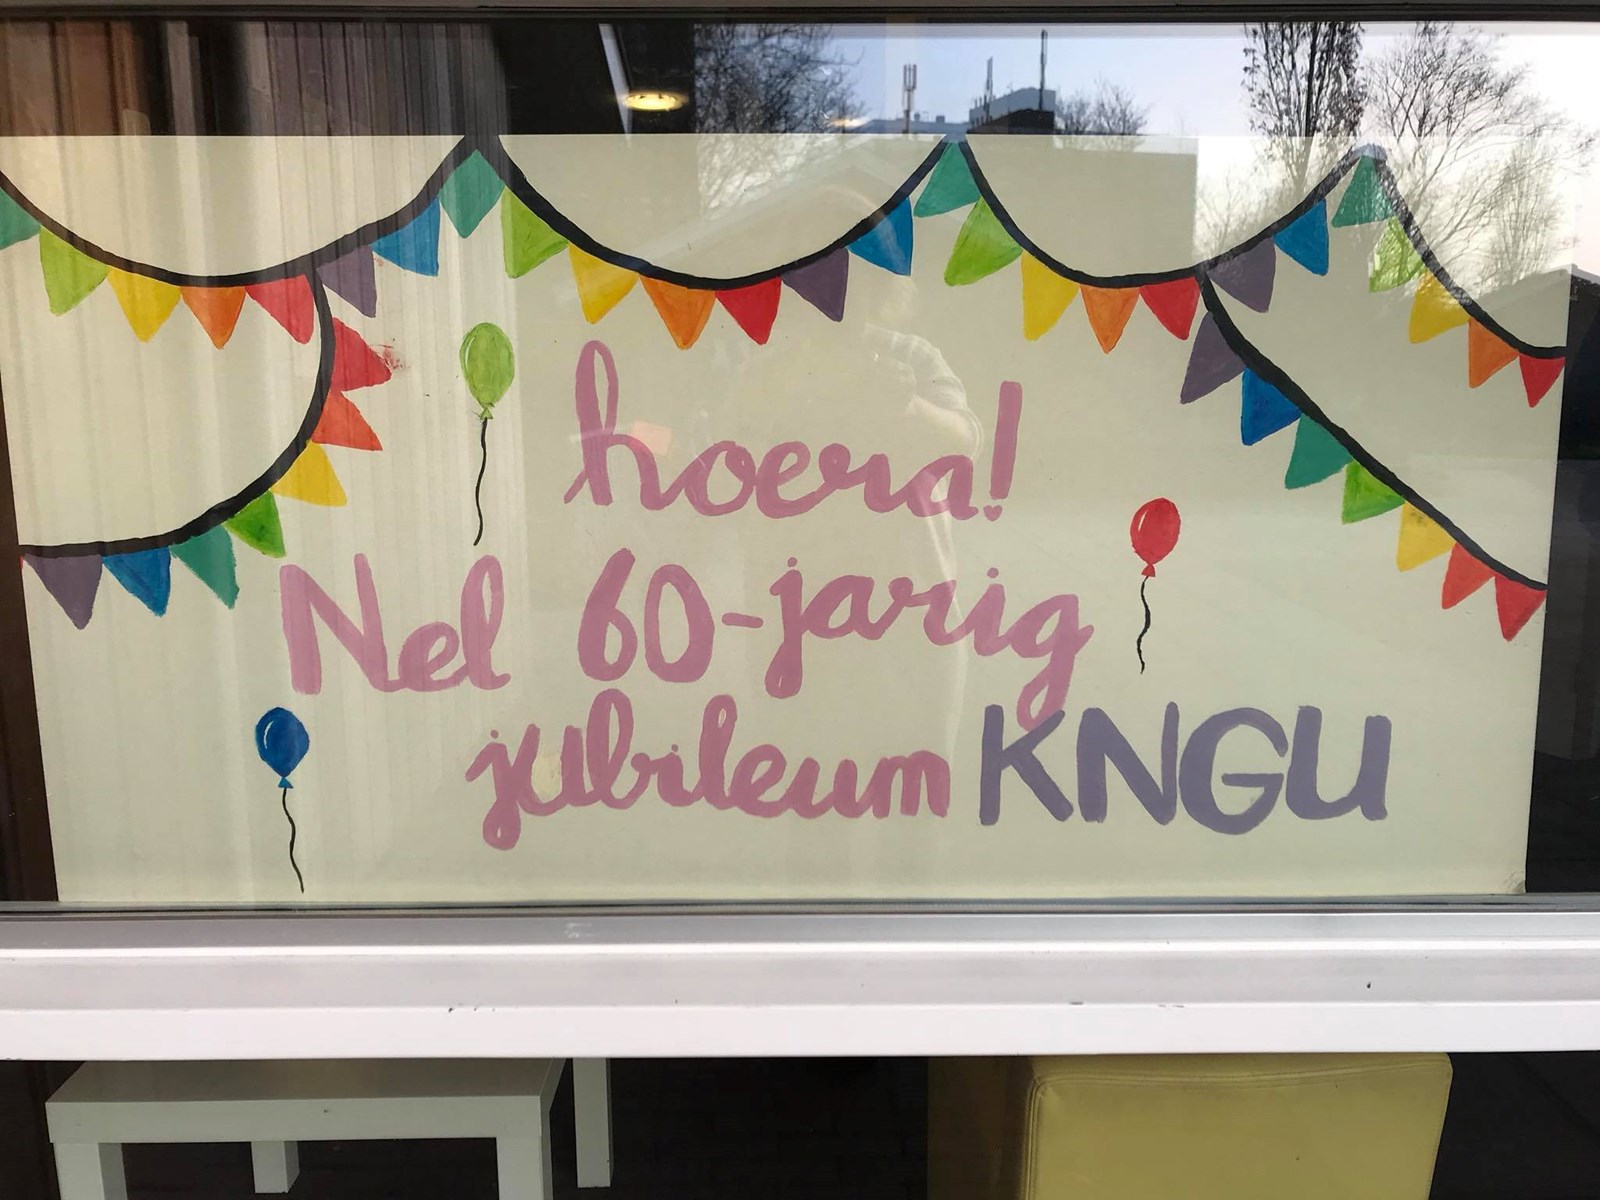 hoera!
Nel 60-jarig
jubileum KNGU